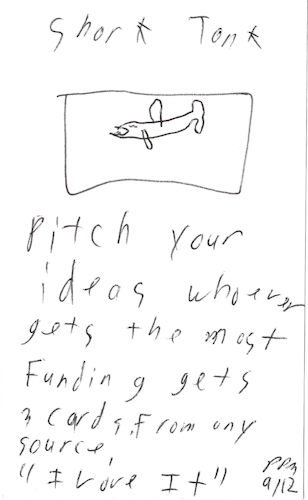 Shark Tank
Pitch your
ideas whoever
gets the most
Funding gets
3 cards, from any
source.
"I Love It"
PPM
9/12